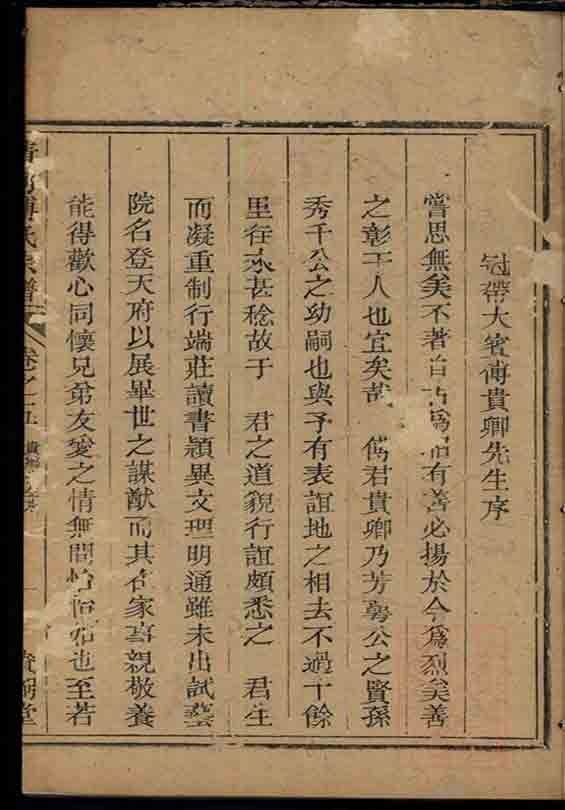 冠帶大賓傅貴卿先生序
嘗思無美不著自古爲昭有善必揚於今爲烈美善
之彰于人也宜矣哉 傅君貴卿乃芳譽公之賢孫
秀千公之幼嗣也與予有表誼地之相去不過十餘
里往來甚稔故于 君之道貌行誼頗悉之 君生
而凝重制行端莊讀書穎異文理明通雖未出試藝
院名登天府以展畢世之謀猷而其在家事親敬養
能得歡心同懷兄弟友愛之情無間怡怡如也至若
傅氏宗譜 卷之五